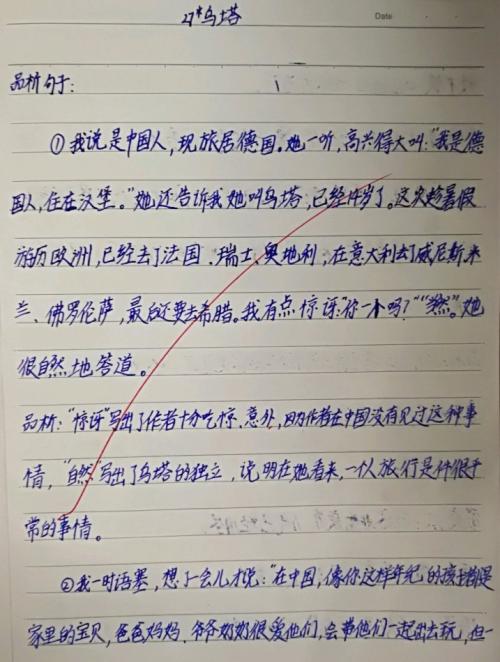 27*乌塔
Date
品析句子:
①我说是中国人,现旅居德国。她一听,高兴得大叫:"我是德
国人,住在汉堡。"她还告诉我她叫乌塔,已经14岁了。这次趁暑假
游历欧洲,已经去了法国、瑞士、奥地利,在意大利去了威尼斯、米
兰、佛罗伦萨,最后还要去希腊。我有点惊讶:"你一个吗?""当然。"她
很自然地答道。
品析:"惊讶"写出了作者十分吃惊、意外,因为作者在中国没有见过这种事
情,"自然"写出了乌塔的独立,说明在她看来,一个人旅行是件很平
常的事情。
②我一时语塞,想了一会儿才说:"在中国,像你这样年纪的孩子都是
家里的宝贝,爸爸妈妈、爷爷奶奶很爱他们,会带他们一起出去玩,但一